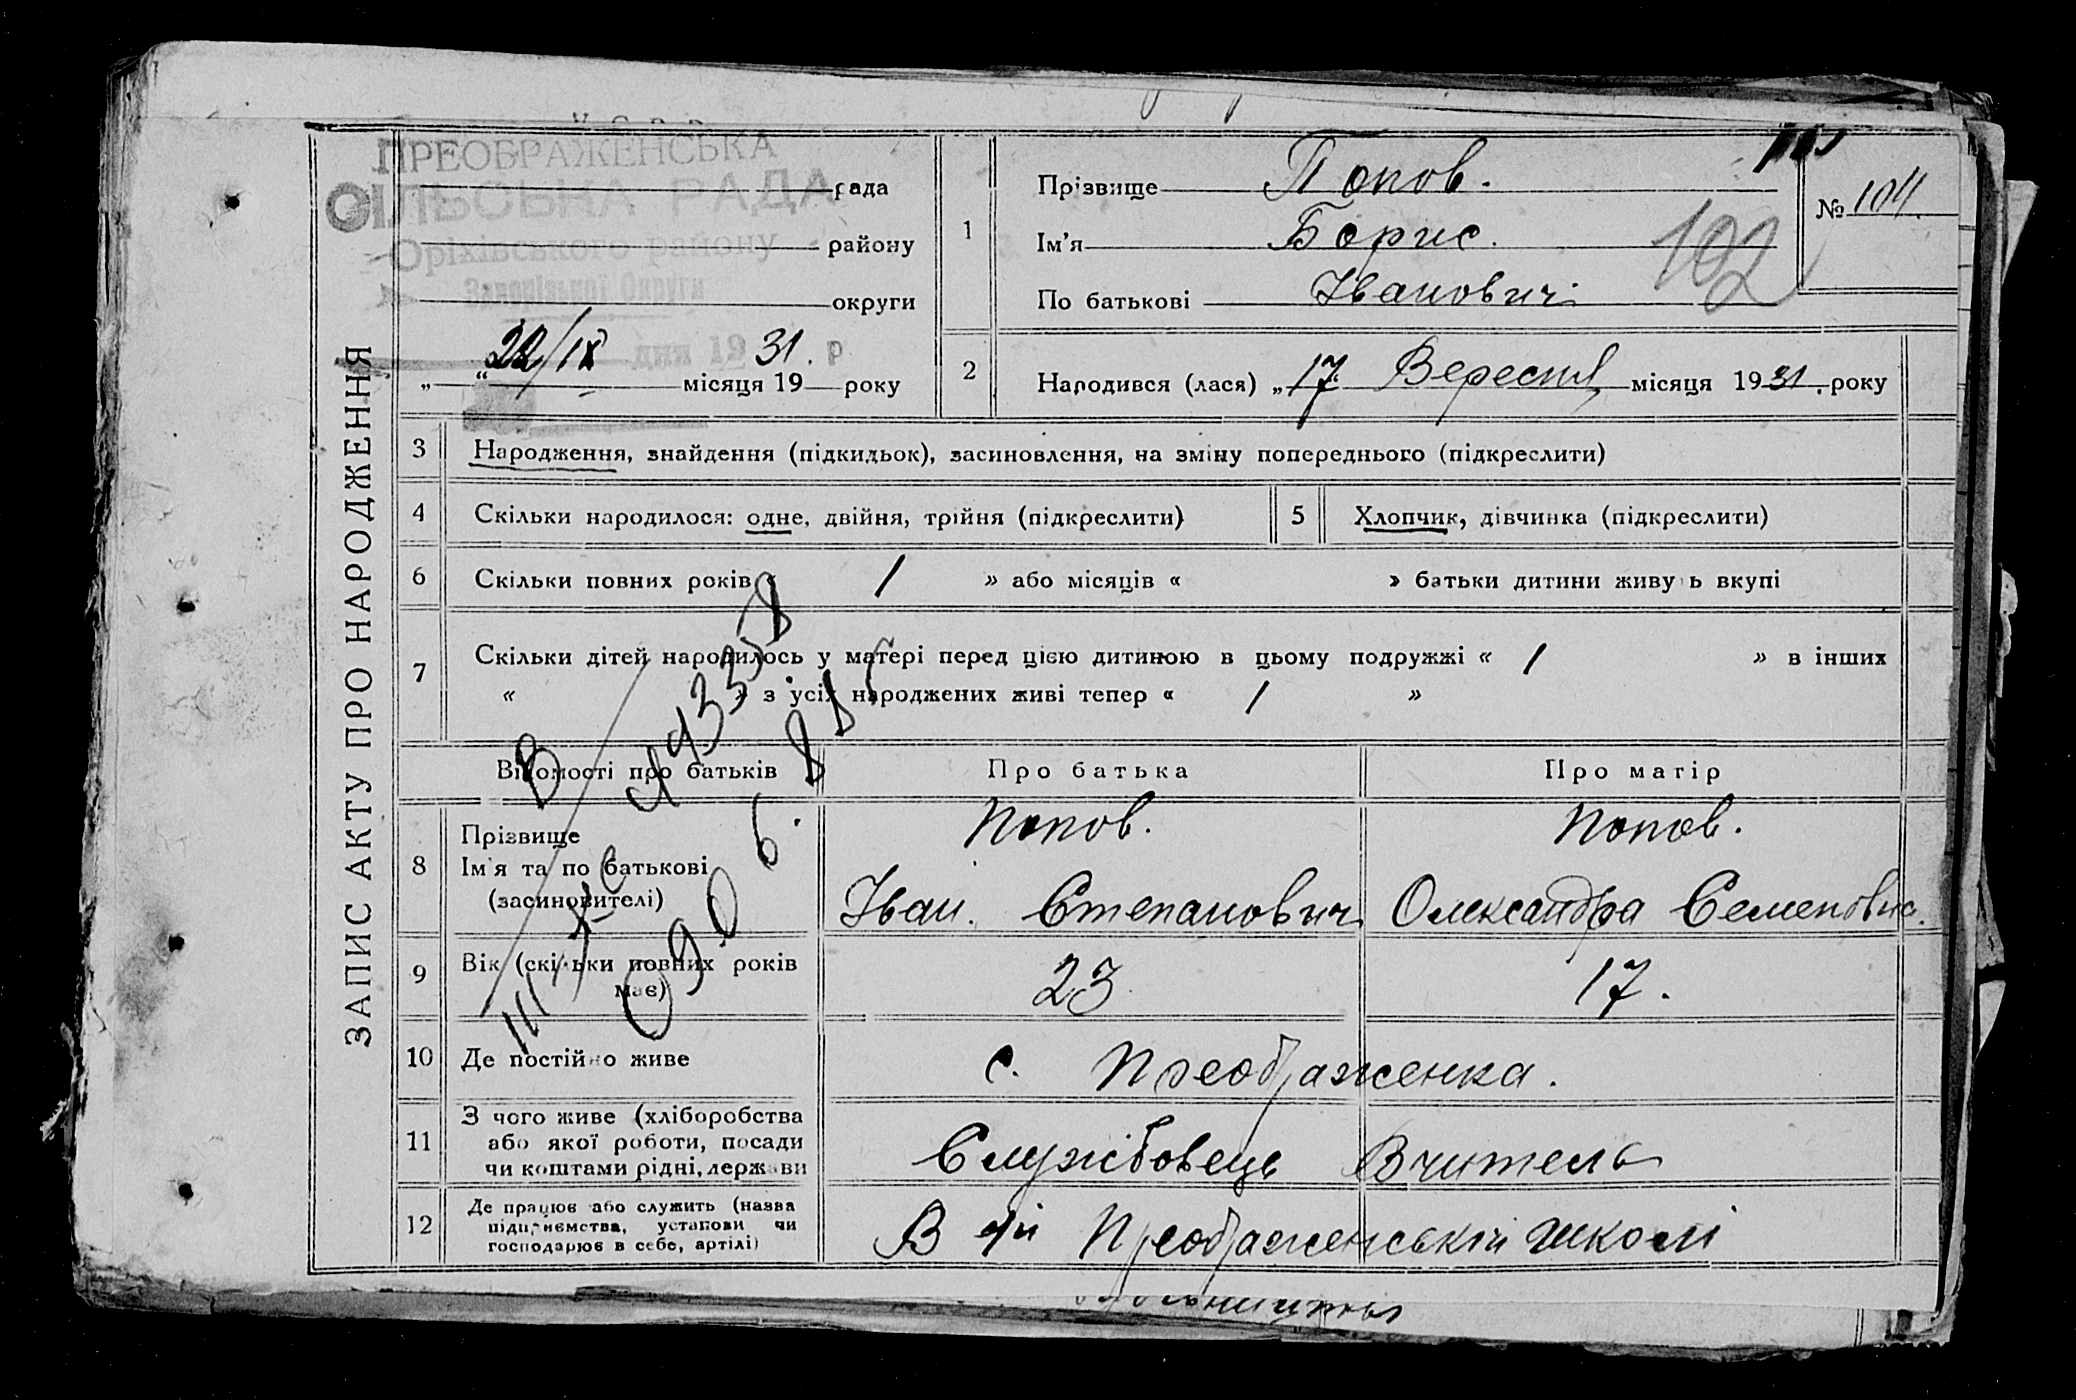 ЗАПИС АКТУ ПРО НАРОДЖЕННЯ
ПРЕОБРАЖЕНСЬКА
рада
СІЛЬСЬКА РАДА
району
Оріхівського району
Запорізької Округи
округи
дня 19 р
„ “ 22/IX місяця 19 31. року
1
Прізвище Попов.
Ім'я Борис.
По батькові Іванович
№ 104.
102
2
Народився (лася) „ 17. Вересня місяця 19 31. року
3 Народження, знайдення (підкидьок), засиновлення, на зміну попереднього (підкреслити)
4 Скільки народилося: одне, двійня, трійня (підкреслити)
5 Хлопчик, дівчинка (підкреслити)
6 Скільки повних років « 1 » або місяців « » батьки дитини живуть вкупі
7 Скільки дітей народилось у матері перед цією дитиною в цьому подружжі « 1 » в інших
« » з усіх народжених живі тепер « 1 »
Відомості про батьків
Про батька
Про матір
8 Прізвище
Ім'я та по батькові
(засиновителі)
Попов.
Іван. Степанович
Попов.
Олександра Семеновна.
9 Вік (скільки повних років
має)
23
17.
10 Де постійно живе
с. Преображенка.
11 З чого живе (хліборобства
або якої роботи, посади
чи коштами рідні, держави
Службовець Вчитель
12 Де працює або служить (назва
підприємства, установи чи
господарює в себе, артілі)
В Преображенській школі